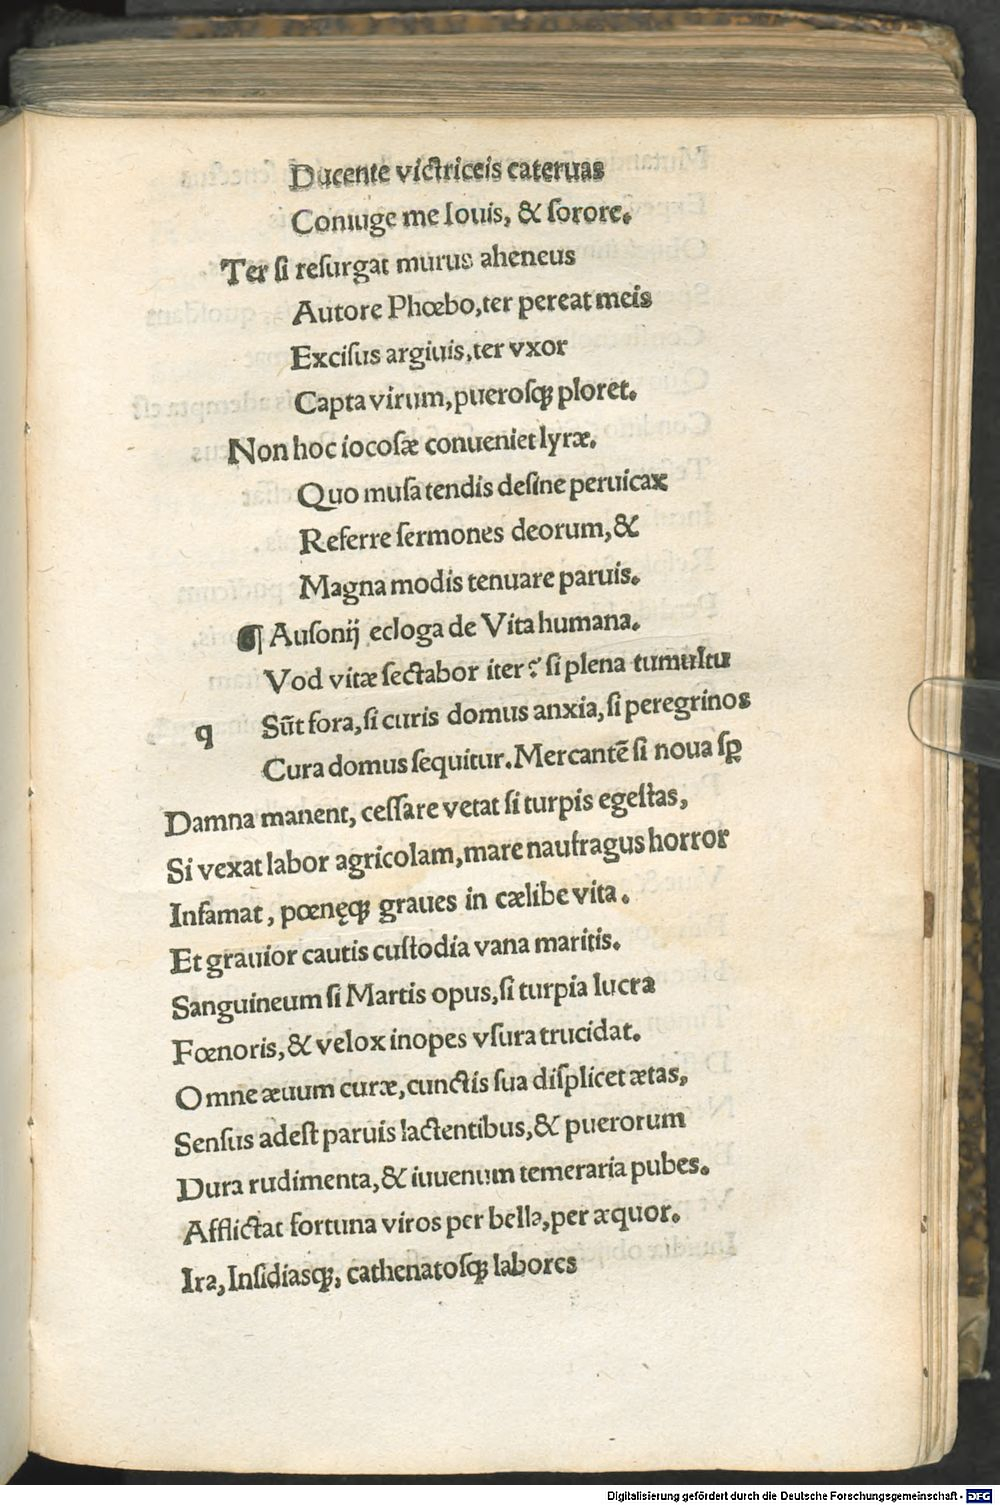 Ducente victriceis cateruas
Coniuge me Iouis, & sorore.
Ter si resurgat murus aheneus
Autore Phœbo, ter pereat meis
Excisus argiuis, ter vxor
Capta virum, puerosqꝫ ploret.
Non hoc iocosæ conueniet lyræ.
Quo musa tendis desine peruicax
Referre sermones deorum, &
Magna modis tenuare paruis.
¶ Ausonij ecloga de Vita humana.
q Vod vitæ sectabor iter? si plena tumultu
Sūt fora, si curis domus anxia, si peregrinos
Cura domus sequitur. Mercantē si noua sꝑ
Damna manent, cessare vetat si turpis egestas,
Si vexat labor agricolam, mare naufragus horror
Infamat, pœnęqꝫ graues in cælibe vita.
Et grauior cautis custodia vana maritis.
Sanguineum si Martis opus, si turpia lucra
Fœnoris, & velox inopes vsura trucidat.
Omne æuum curæ, cunctis sua displicet ætas,
Sensus adest paruis lactentibus, & puerorum
Dura rudimenta, & iuuenum temeraria pubes.
Afflictat fortuna viros per bella, per æquor.
Ira, Insidiasqꝫ, cathenatosqꝫ labores
Digitalisierung gefördert durch die Deutsche Forschungsgemeinschaft - DFG